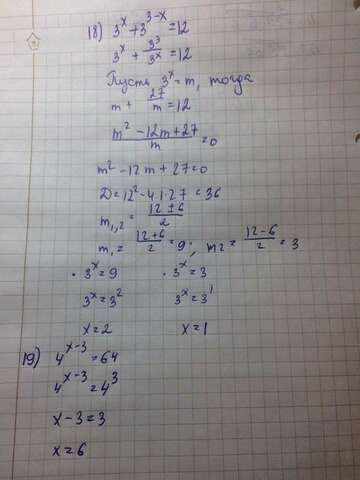 18) 3^x + 3^(3-x) = 12
3^x + 3^3/3^x = 12
Пусть 3^x = m, тогда
m + 27/m = 12
(m^2 - 12m + 27)/m = 0
m^2 - 12m + 27 = 0
D = 12^2 - 4·1·27 = 36
m1,2 = (12 ± 6)/2
m1 = (12+6)/2 = 9, m2 = (12-6)/2 = 3
• 3^x = 9 • 3^x = 3
3^x = 3^2 3^x = 3^1
x = 2 x = 1
19) 4^(x-3) = 64
4^(x-3) = 4^3
x - 3 = 3
x = 6